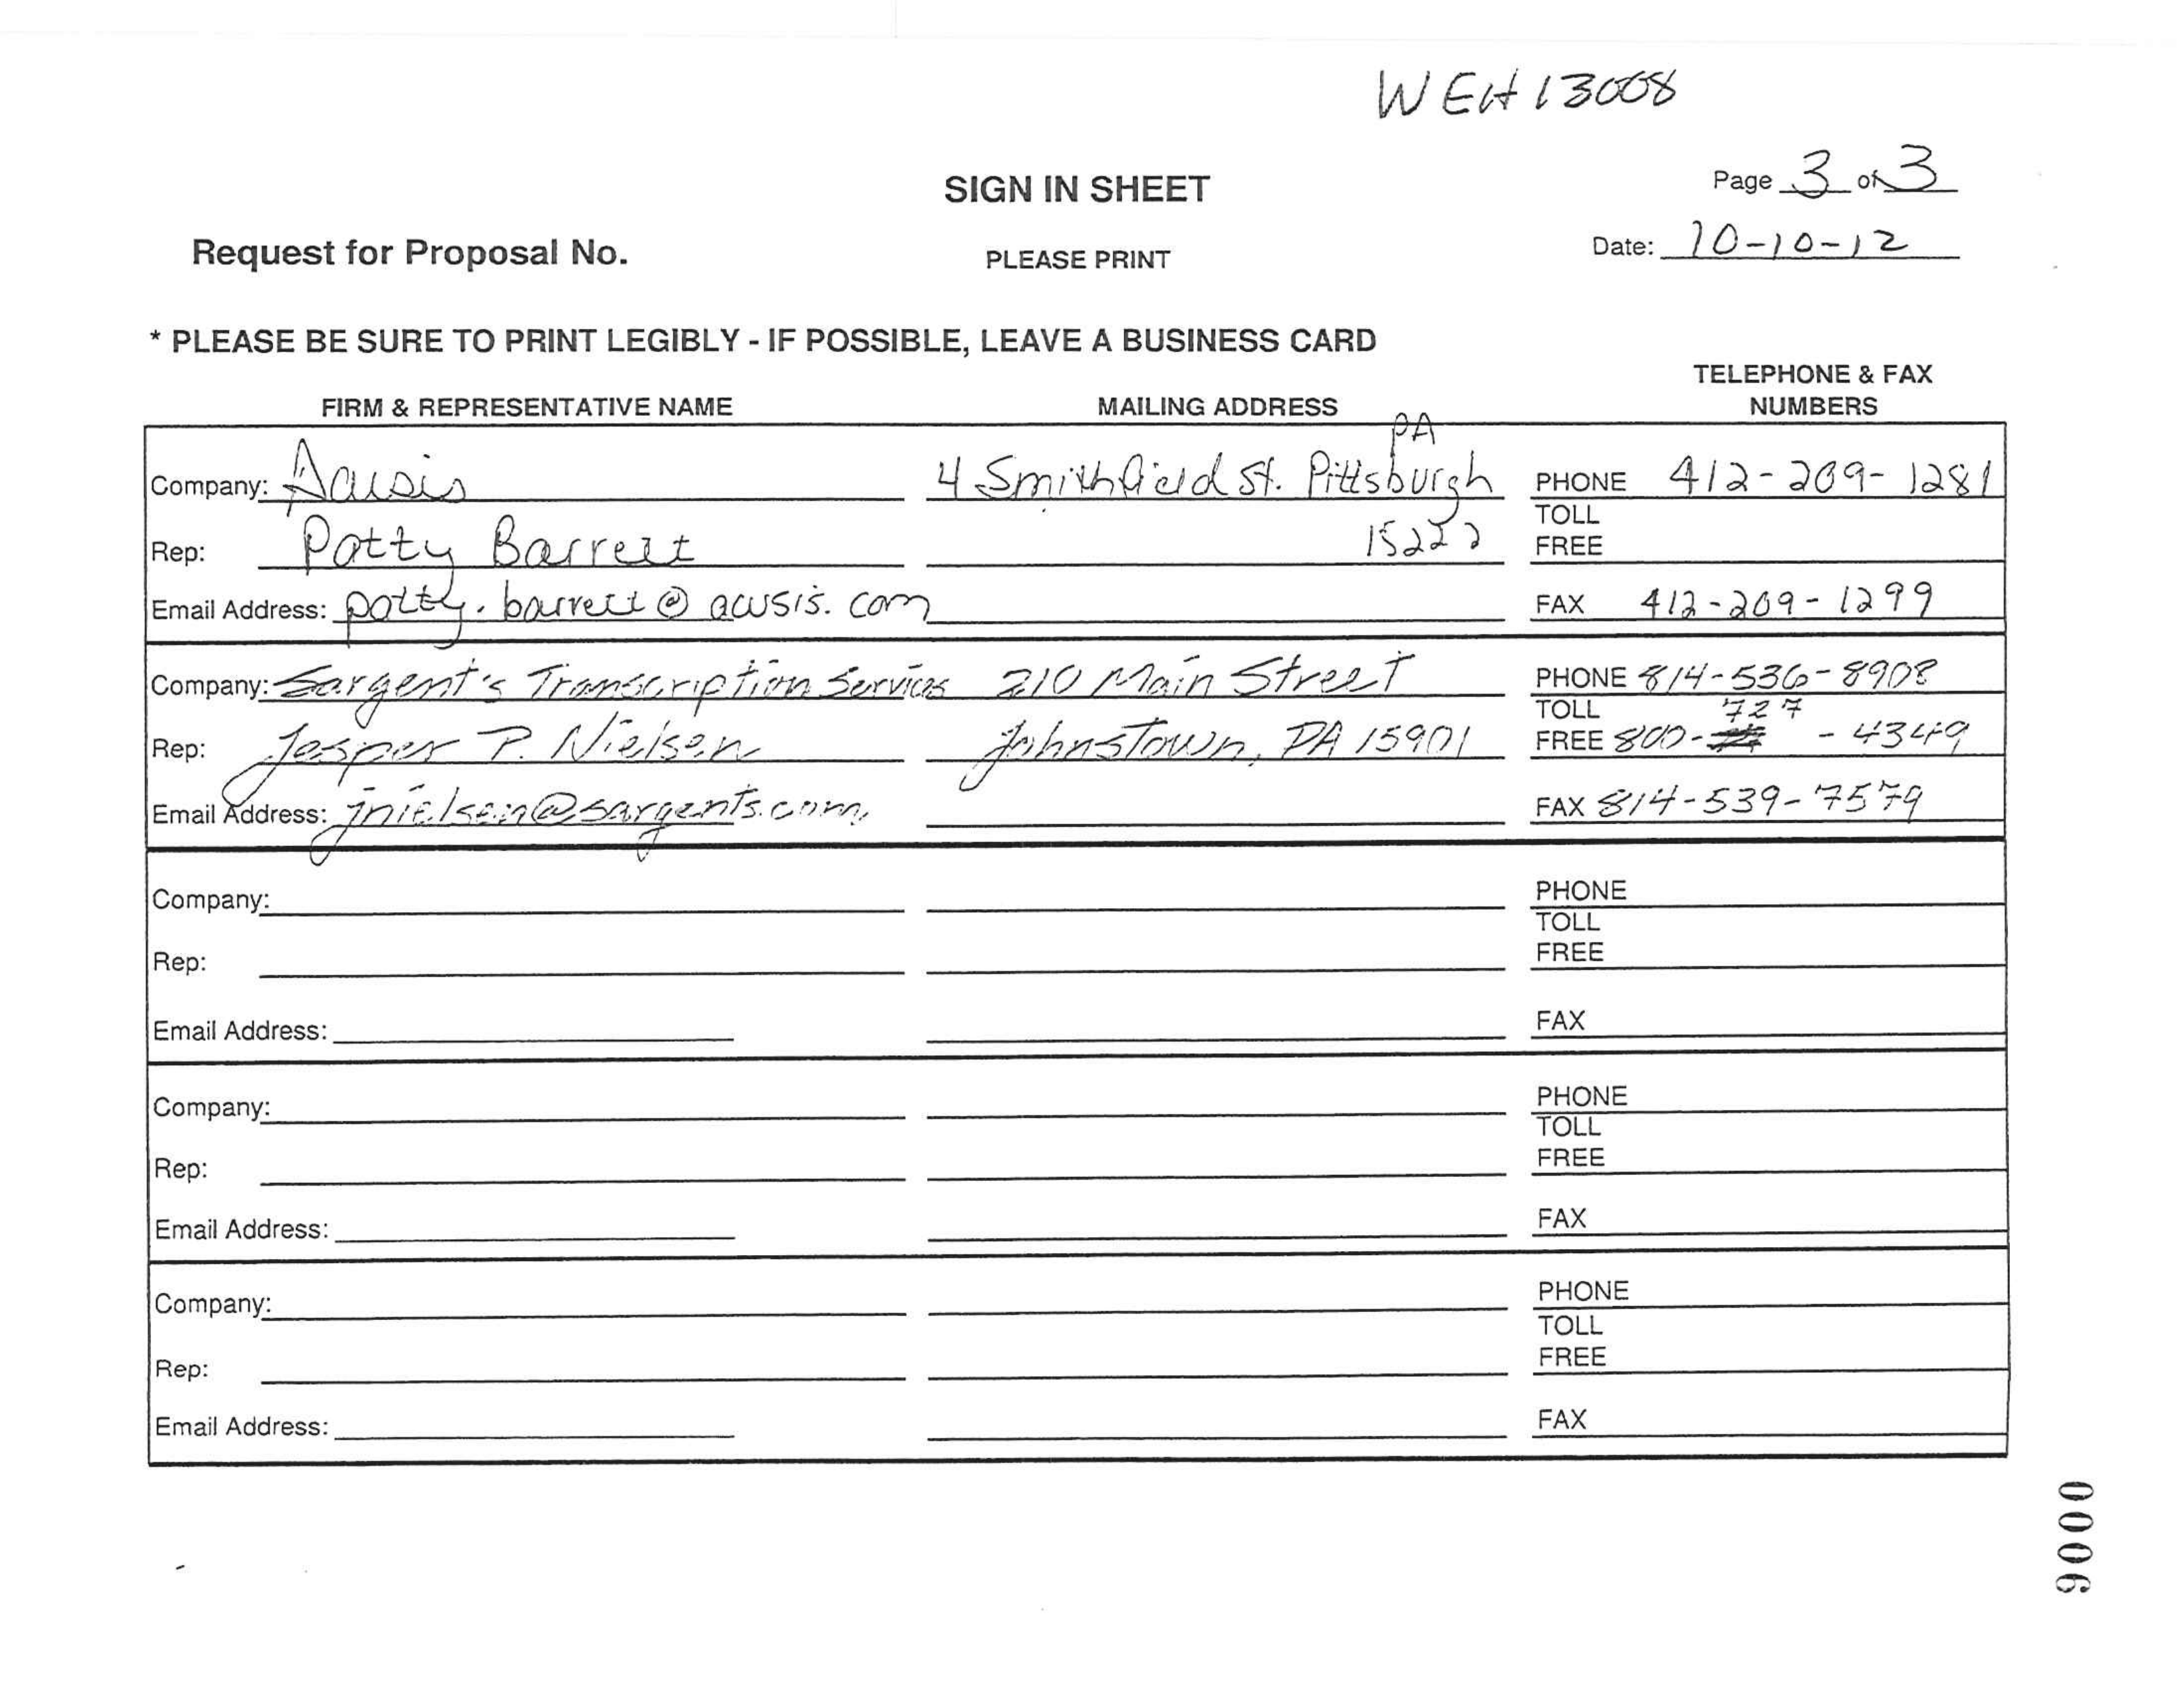 WEH13008
Page 3 of 3
SIGN IN SHEET
Date: 10-10-12
Request for Proposal No.
PLEASE PRINT
* PLEASE BE SURE TO PRINT LEGIBLY - IF POSSIBLE, LEAVE A BUSINESS CARD
TELEPHONE & FAX
FIRM & REPRESENTATIVE NAME MAILING ADDRESS NUMBERS
PA
Company: Acusis 4 Smithfield St. Pittsburgh PHONE 412-209-1281
TOLL
Rep: Patty Barrett 15222 FREE
Email Address: patty.barrett@acusis.com FAX 412-209-1299
Company: Sargent's Transcription Services 210 Main Street PHONE 814-536-8908
TOLL 727
Rep: Jesper P. Nielsen Johnstown, PA 15901 FREE 800- - 4349
Email Address: jnielsen@sargents.com FAX 814-539-7579
Company: PHONE
TOLL
Rep: FREE
Email Address: FAX
Company: PHONE
TOLL
Rep: FREE
Email Address: FAX
Company: PHONE
TOLL
Rep: FREE
Email Address: FAX
0006